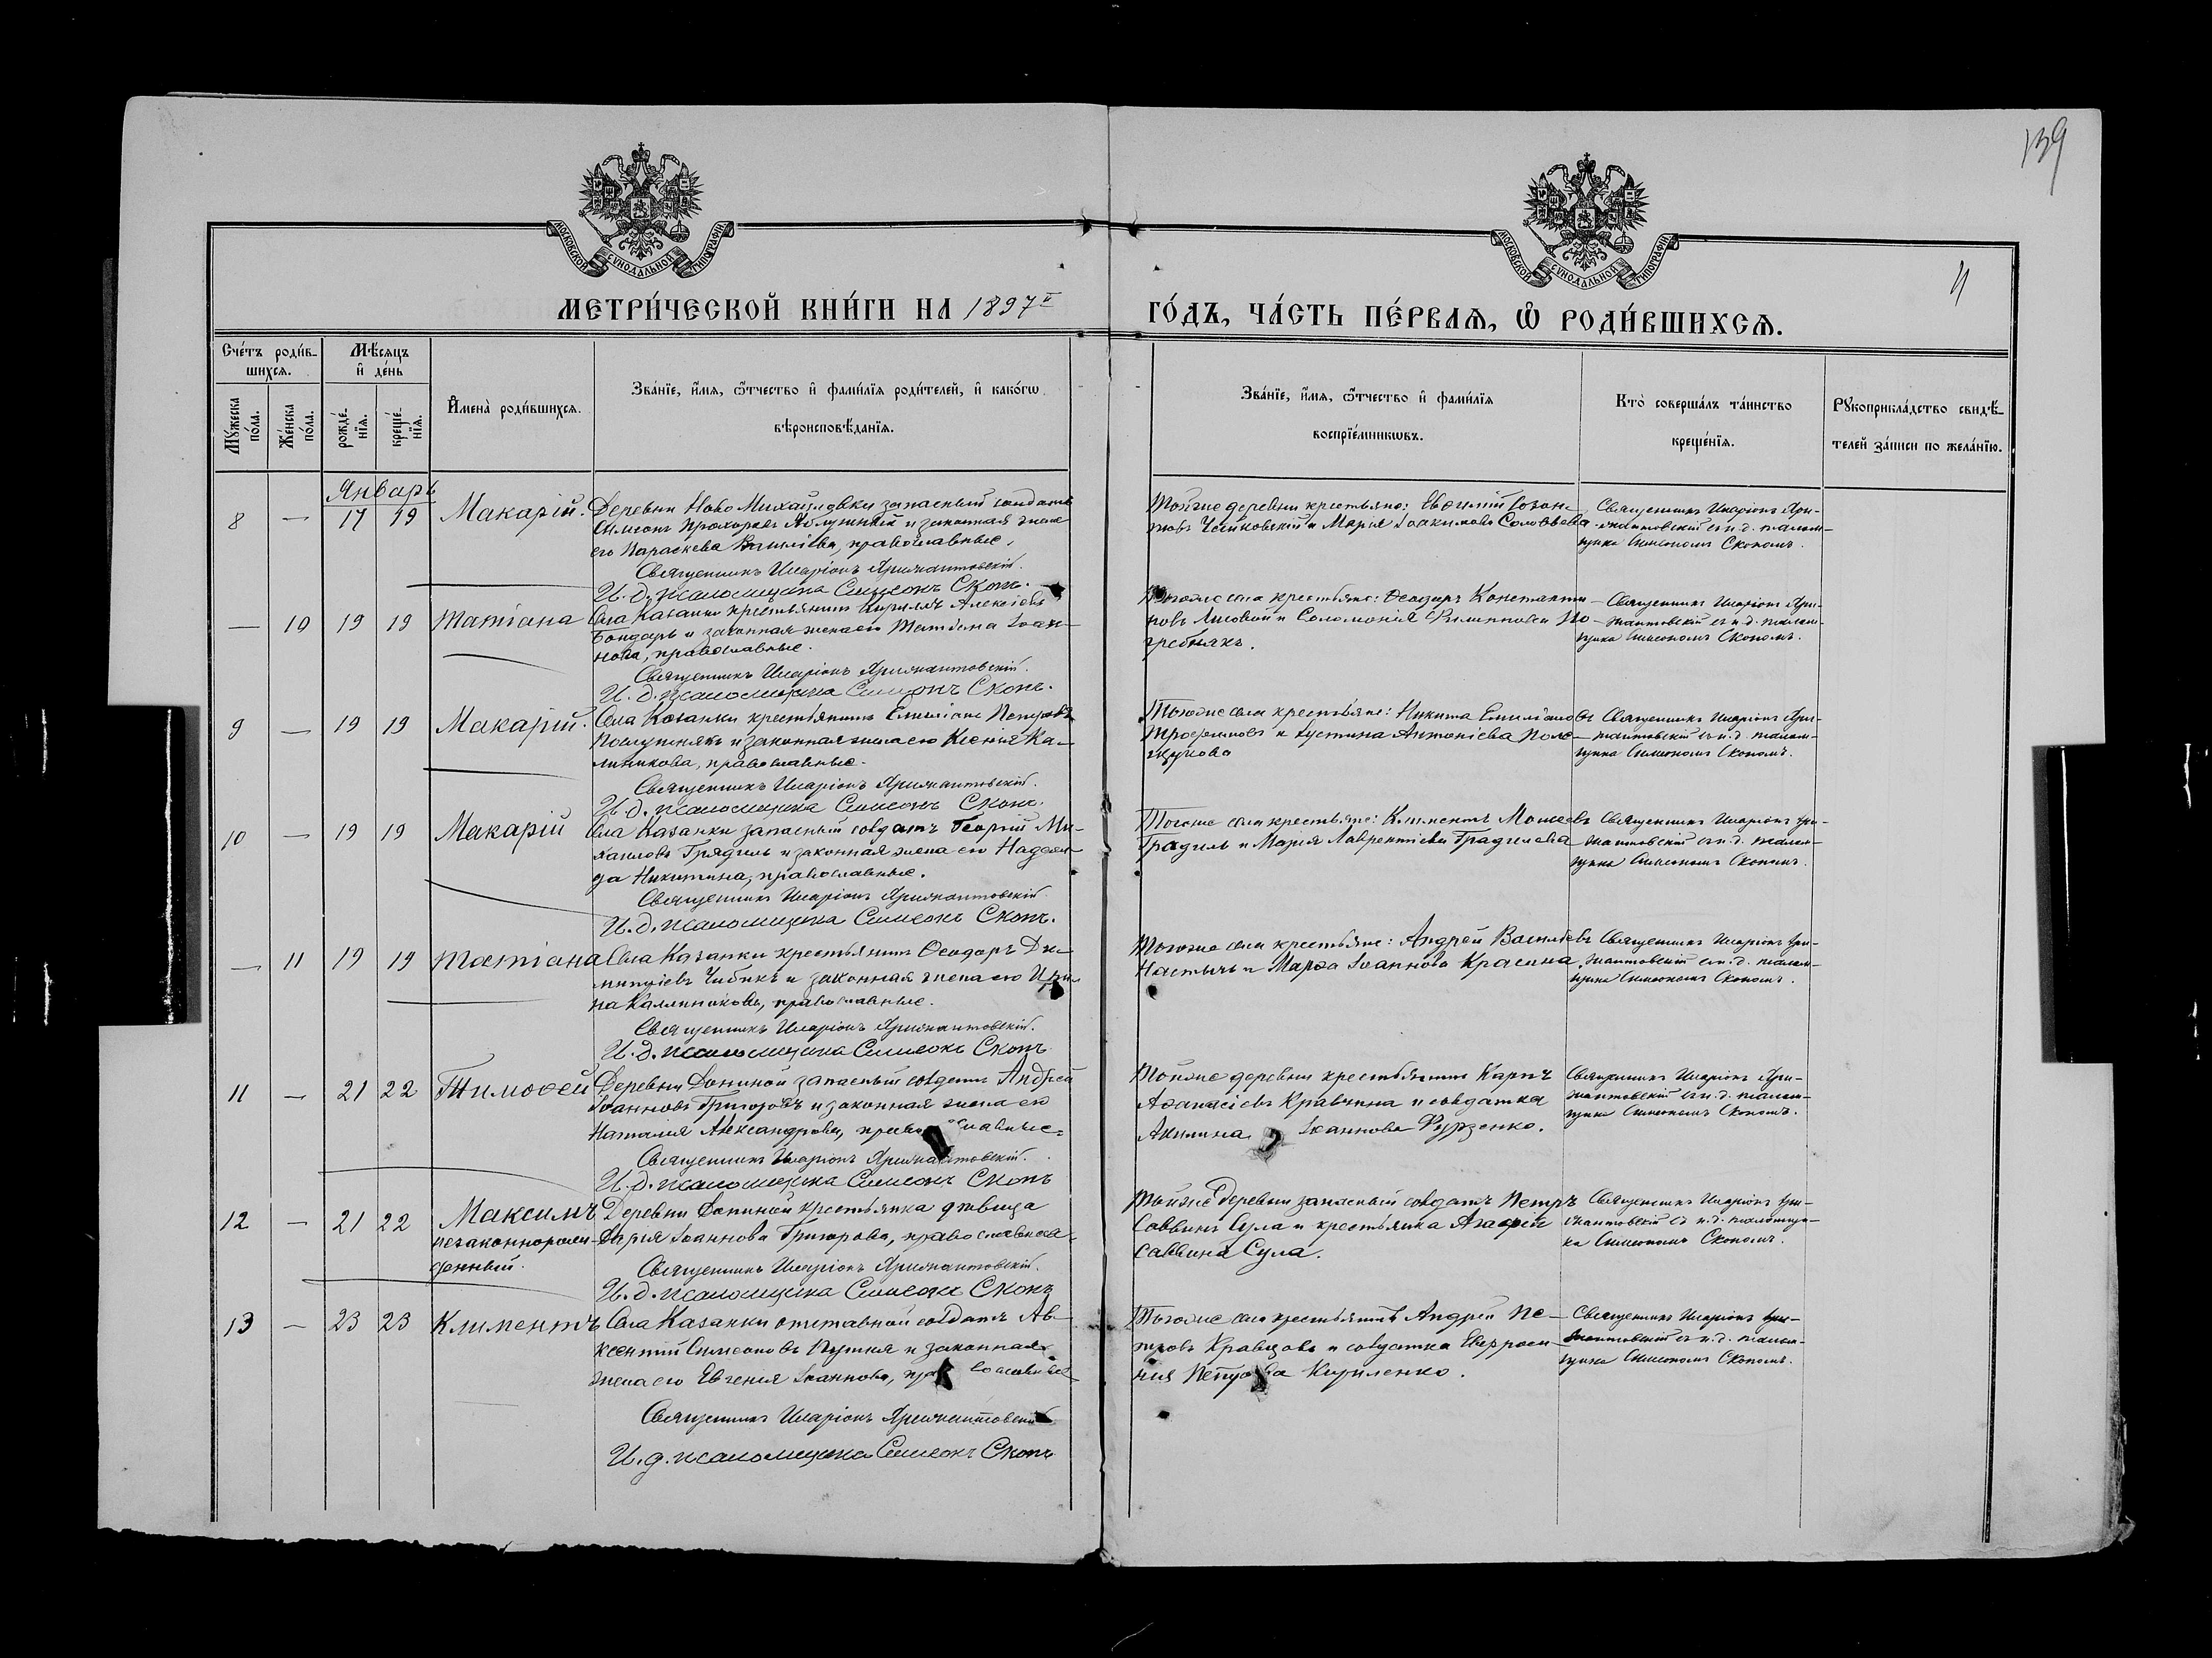 139
МОСКОВСКОЙ СѴНОДАЛЬНОЙ ТИПОГРАФІИ
МОСКОВСКОЙ СѴНОДАЛЬНОЙ ТИПОГРАФІИ
4
МЕТРИ́ЧЕСКОЙ КНИ́ГИ НА 1897й
ГО́ДЪ, ЧА́СТЬ ПЕ́РВАѦ, Ѡ҆ РОДИ́ВШИХСѦ.
Сче́тъ роди́в-
шихсѧ.
Мѣ́сѧцъ
и҆ де́нь
Мꙋ́жеска по́ла.
Же́нска по́ла.
рожде́нїѧ.
креще́нїѧ.
И҆мена̀ роди́вшихсѧ.
Зва́нїе, и҆́мѧ, ѻ҆́тчество и҆ фами́лїѧ роди́телей, и҆ како́гѡ
вѣроисповѣ́данїѧ.
Зва́нїе, и҆́мѧ, ѻ҆́тчество и҆ фами́лїѧ
воспрїе́мникѡвъ.
Кто̀ соверша́лъ та́инство
креще́нїѧ.
Рꙋкоприкла́дство свидѣ́-
телей за́писи по жела́нїю.
Январь
8 — 17 19 Макарій.
Деревни Ново Михайловки запасный солдатъ
Симеонъ Прохоровъ и законная жена
его Параскева Василіева, православные,
Священникъ Иларіонъ
И. д. псаломщика Симеонъ Скопъ.
Тойже деревни крестьяне: Евѳимій
Чайковскій и Марія Іоакимова Соловьева
Священникъ Иларіонъ
съ и. д. псалом-
щика Симеономъ Скопомъ.
— 10 19 19 Татіана
Села Казанки крестьянинъ Кириллъ Алексіевъ
Бондарь и законная жена его Татіана Іоан-
нова, православные.
Священникъ Иларіонъ
И. д. псаломщика Симеонъ Скопъ.
Тогоже села крестьяне: Ѳеодоръ Константи-
новъ Лисовой и Соломонія Филиппова По-
гребнякъ.
Священникъ Иларіонъ
съ и. д. псалом-
щика Симеономъ Скопомъ.
9 — 19 19 Макарій.
Села Казанки крестьянинъ Емиліанъ Петровъ
и законная жена его Ксенія Ка-
линикова, православные.
Священникъ Иларіонъ
И. д. псаломщика Симеонъ Скопъ.
Тогоже села крестьяне: Никита Емиліановъ
и Іустина Антоніева
Священникъ Иларіонъ
съ и. д. псалом-
щика Симеономъ Скопомъ.
10 — 19 19 Макарій
Села Казанки запасный солдатъ Георгій Ми-
хаиловъ Градиль и законная жена его Надеж-
да Никитина, православные.
Священникъ Иларіонъ
И. д. псаломщика Симеонъ Скопъ.
Тогоже села крестьяне: Климентъ Моисеевъ
Градиль и Марія Лаврентіева Градилева
Священникъ Иларіонъ
съ и. д. псалом-
щика Симеономъ Скопомъ.
— 11 19 19 Татіана
Села Казанки крестьянинъ Ѳеодоръ Ди-
митріевъ Чибикъ и законная жена его Ири-
на Каллиникова, православные.
Священникъ Иларіонъ
И. д. псаломщика Симеонъ Скопъ
Тогоже села крестьяне: Андрей Василіевъ
и Марѳа Іоаннова Красина
Священникъ Иларіонъ
съ и. д. псалом-
щика Симеономъ Скопомъ.
11 — 21 22 Тимоѳей
Деревни Дониной запасный солдатъ Андрей
Іоанновъ Григоровъ и законная жена его
Наталія Александрова, православные.
Священникъ Иларіонъ
И. д. псаломщика Симеонъ Скопъ
Тойже деревни крестьянинъ Карпъ
Аѳанасіевъ Кравчина и солдатка
Акилина Іоаннова Фурзенко.
Священникъ Иларіонъ
съ и. д. псалом-
щика Симеономъ Скопомъ.
12 — 21 22 Максимъ
незаконнорож-
денный.
Деревни Дониной крестьянка дѣвица
Дарія Іоаннова Григорова, православная.
Священникъ Иларіонъ
И. д. псаломщика Симеонъ Скопъ
Тойже деревни запасный солдатъ Петръ
Саввинъ Сула и крестьянка Агафія
Саввина Сула.
Священникъ Иларіонъ
съ и. д. псаломщи-
ка Симеономъ Скопомъ.
13 — 23 23 Климентъ
Села Казанки отставной солдатъ Ав-
ксентій Симеоновъ и законная
жена его Евгенія Іоаннова, православные
Священникъ Иларіонъ
И. д. псаломщика Симеонъ Скопъ
Тогоже села крестьянинъ Андрей Пе-
тровъ Кравцовъ и солдатка Евфроси-
нія Петрова Кириленко.
Священникъ Иларіонъ
съ и. д. псалом-
щика Симеономъ Скопомъ.